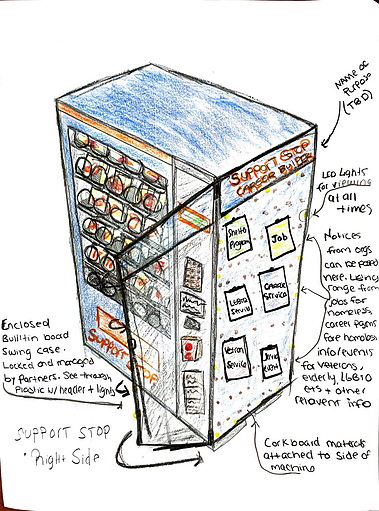 NAME OF
PURPOSE
(TBD)
SUPPORT STOP
CAREER BUILDER
LED Lights
for viewing
at all
times
Shelter
Program
Job
Notices
from orgs
can be posted
here. Listings
range from
jobs for
homeless,
career pages
fore homeless
info/events
for Veterans,
elderly, LGBTQ
ets + other
relavent info
LGBTQ
Service
Career
Service
Vetran
Service
event
Enclosed
Built-in board
Swing case.
Locked and managed
by Partners. See-through
Plastic w/header + lights
SUPPORT
STOP
SUPPORT STOP
• Right Side
Corkboard material
attached to side of
machine